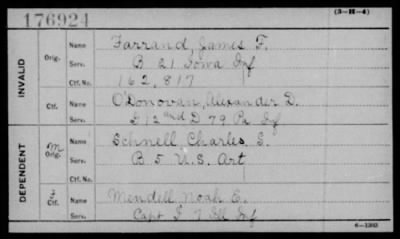 176924
(3-H-4)
INVALID
Orig.
Name Farrand, James F.
Serv. B 21 Iowa Inf
Ctf. No. 162,817
Ctf.
Name O'Donovan, Alexander D.
Serv. 12 and D 79 Pa Inf
DEPENDENT
M
Orig.
Name Schnell, Charles S.
Serv. B 5 U.S. Art
Ctf. No.
Ctf.
Name Mendell Noah E.
Serv. Capt I 7 Ill Inf
6-1303